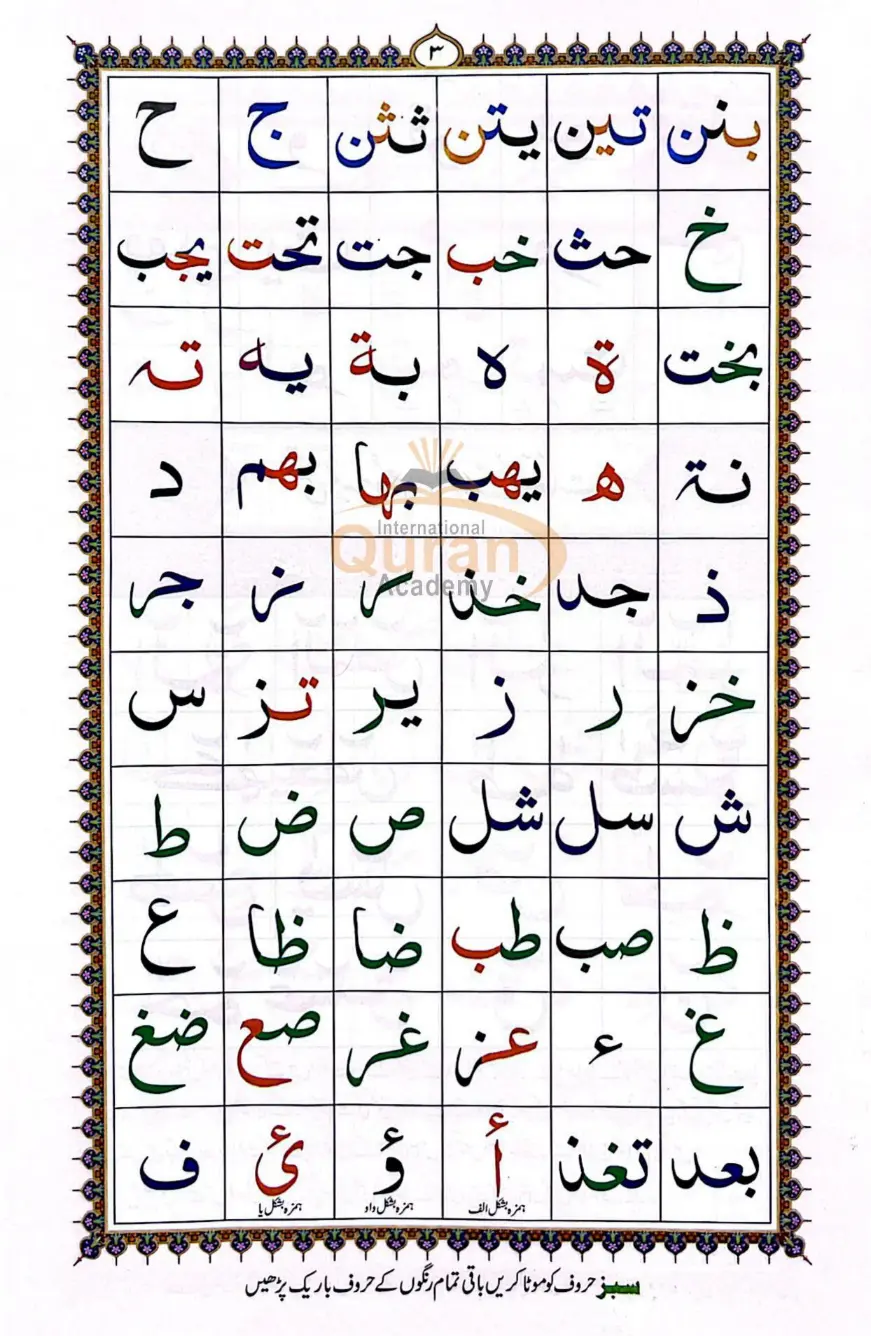 ٣
بنن تين يتن ثثن ج ح
خ حث خب جت تحت يجب
بخت ة ہ بة يه تہ
نة ھ يهب بها بهم د
International
Quran
Academy
ذ جد خذ ر ز جر
خز ر ز ير تز س
ش سل شل ص ض ط
ظ صب طب ضا ظا ع
غ ء عز غر صع ضغ
بعد تغذ أ ؤ ئ ف
ہمزہ بشکل الف ہمزہ بشکل واو ہمزہ بشکل یا
سبز حروف کو موٹا کریں باقی تمام رنگوں کے حروف باریک پڑھیں